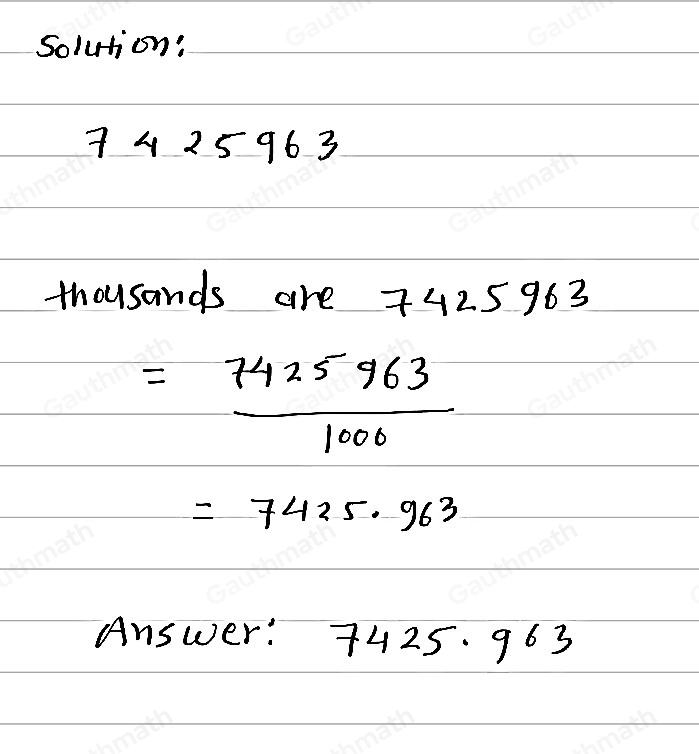 Solution:
7425963
thousands are 7425963
= 7425963
1000
= 7425.963
Answer: 7425.963